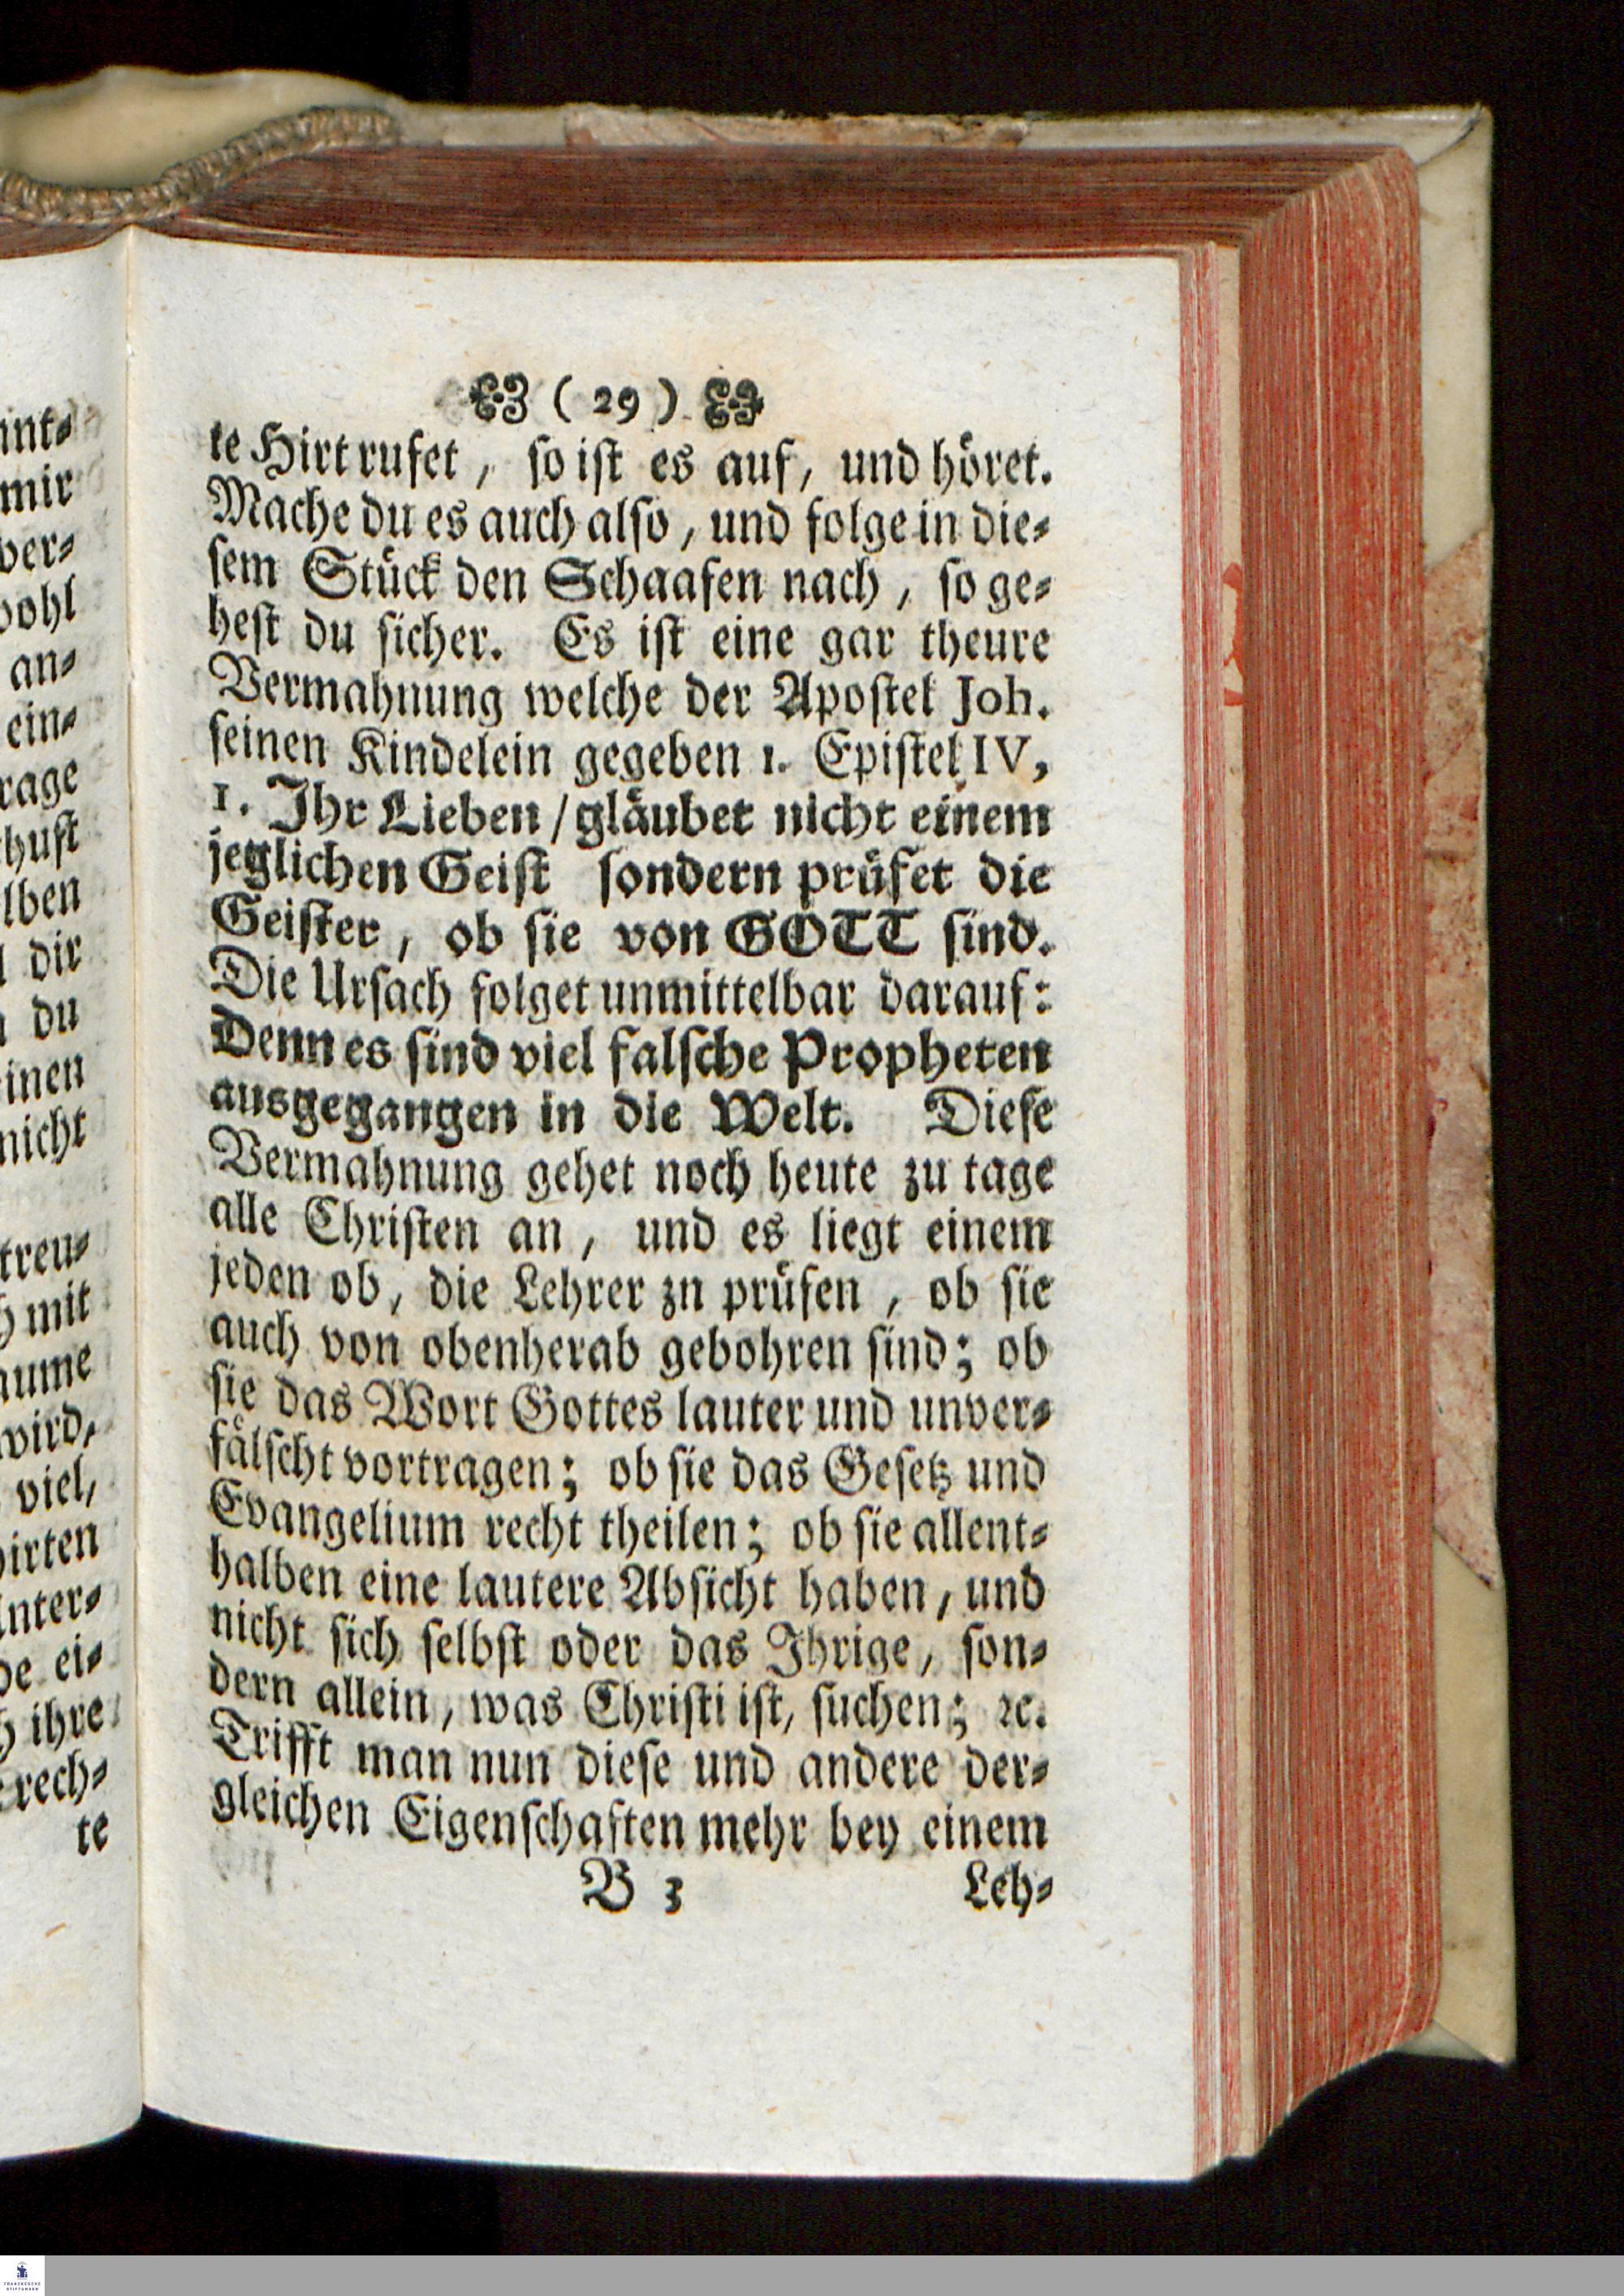 nnt⸗
mir
ver⸗
wohl
an⸗
ein⸗
rage
thust
lben
dir
du
inen
nicht
treu⸗
mit
aume
wird,
viel,
hirten
nter⸗
ei⸗
ihre
rech⸗
te
( 29 )
te Hirt rufet, so ist es auf, und höret.
Mache du es auch also, und folge in die⸗
sem Stück den Schaafen nach, so ge⸗
hest du sicher. Es ist eine gar theure
Vermahnung welche der Apostel Joh.
seinen Kindelein gegeben 1. Epistel IV,
1. Ihr Lieben / gläubet nicht einem
jeglichen Geist sondern prüfet die
Geister, ob sie von GOTT sind.
Die Ursach folget unmittelbar darauf:
Denn es sind viel falsche Propheten
ausgegangen in die Welt. Diese
Vermahnung gehet noch heute zu tage
alle Christen an, und es liegt einem
jeden ob, die Lehrer zn prüfen, ob sie
auch von obenherab gebohren sind; ob
sie das Wort Gottes lauter und unver⸗
fälscht vortragen; ob sie das Gesetz und
Evangelium recht theilen; ob sie allent⸗
halben eine lautere Absicht haben, und
nicht sich selbst oder das Ihrige, son⸗
dern allein, was Christi ist, suchen; ꝛc.
Trifft man nun diese und andere der⸗
gleichen Eigenschaften mehr bey einem
B 3 Leh⸗
FRANCKESCHE
STIFTUNGEN